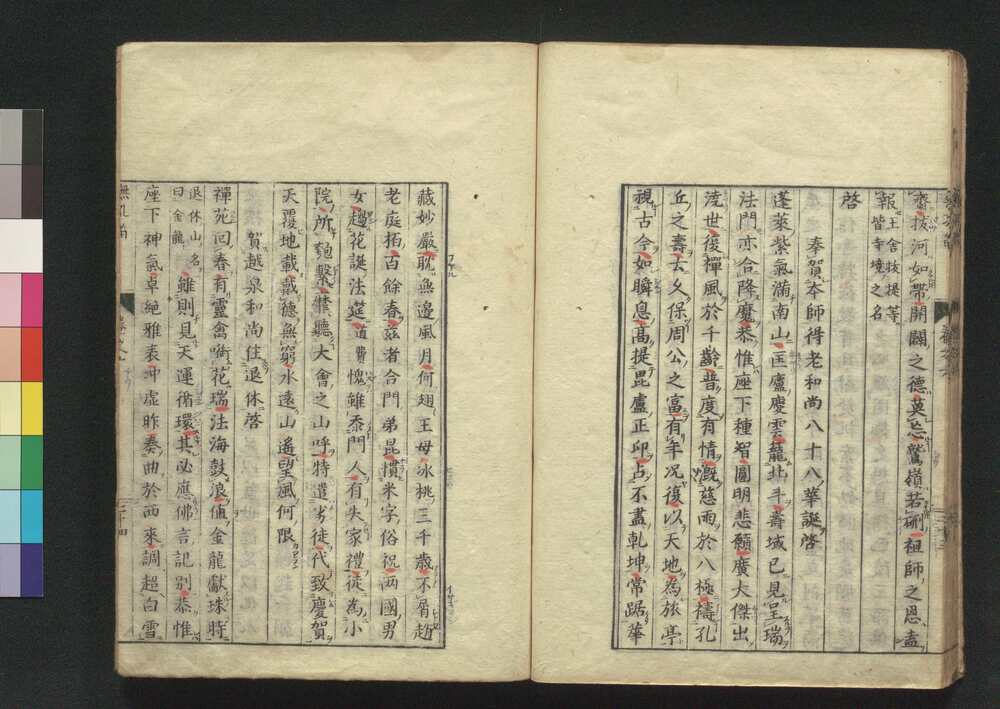 拔河如帶開闢之德莫忘鷲嶺若礪祖師之恩盍
報王舍拔提等皆寺境之名
啓
奉賀本師得老和尚八十八華誕啓
蓬萊紫氣滿南山匡廬慶雲蘢北斗壽域已見呈瑞
法門亦合降魔恭惟座下種智圓明悲願廣大傑出
澆世後禪風於千齡普度有情慨慈雨於八極禱孔
丘之壽去久保周公之富有年况復以天地為旅亭
視古今如瞬息高提毘盧正印占不盡乾坤常踞華
藏妙嚴耽無邊風月何翅王母冰桃三千歲不屑趙
老庭栢百餘春茲者合門弟昆摜米字俗祝兩國男
女趨花誕法筵道費愧雖忝門人有失家禮徒為小
院所匏繫靡聽大會之山呼特遣芳徒代致慶賀
天覆地載戴德無窮水遠山遙望風何限
賀越泉和尚住退休啓
禪苑回春有靈禽啣花瑞法海鼓浪值金龍獻珠時
退休山名曰金龍 雖則見天運循環其必應佛言記別恭惟
座下神氣卓絕雅表冲虛昨奏曲於西來調超白雪